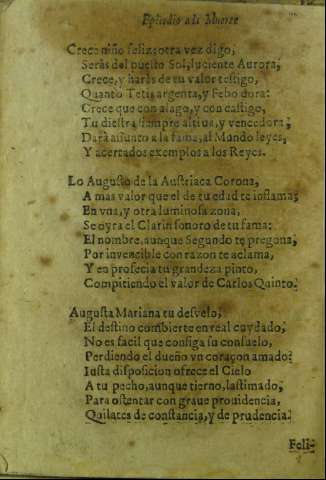 Epicedio a la Muerte
Crece niño feliz; otra vez digo,
Seràs del nueſto Sol, luciente Aurora,
Crece, y haràs de tu valor teſtigo,
Quanto Tetis argenta, y Febo dora:
Crece que con alago, y con caſtigo,
Tu dieſtra ſiempre altiua, y vencedora;
Darà aſſunto a la fama, al Mundo leyes,
Y acertados exemplos a los Reyes.
Lo Auguſto de la Auſtriaca Corona,
A mas valor que el de tu edad te inflama;
En vna, y otra luminoſa zona,
Se oyra el Clarin ſonoro de tu fama:
El nombre, aunque Segundo te pregona,
Por invencible con razon te aclama,
Y en profecia tu grandeza pinto,
Compitiendo el valor de Carlos Quinto.
Auguſta Mariana tu deſvelo,
El deſtino combierte en real cuydado;
No es facil que conſiga ſu conſuelo,
Perdiendo el dueño vn coraçon amado:
Iuſta diſpoſicion ofrece el Cielo
A tu pecho, aunque tierno, laſtimado;
Para oſtentar con graue prouidencia,
Quilates de conſtancia, y de prudencia.
Feli-